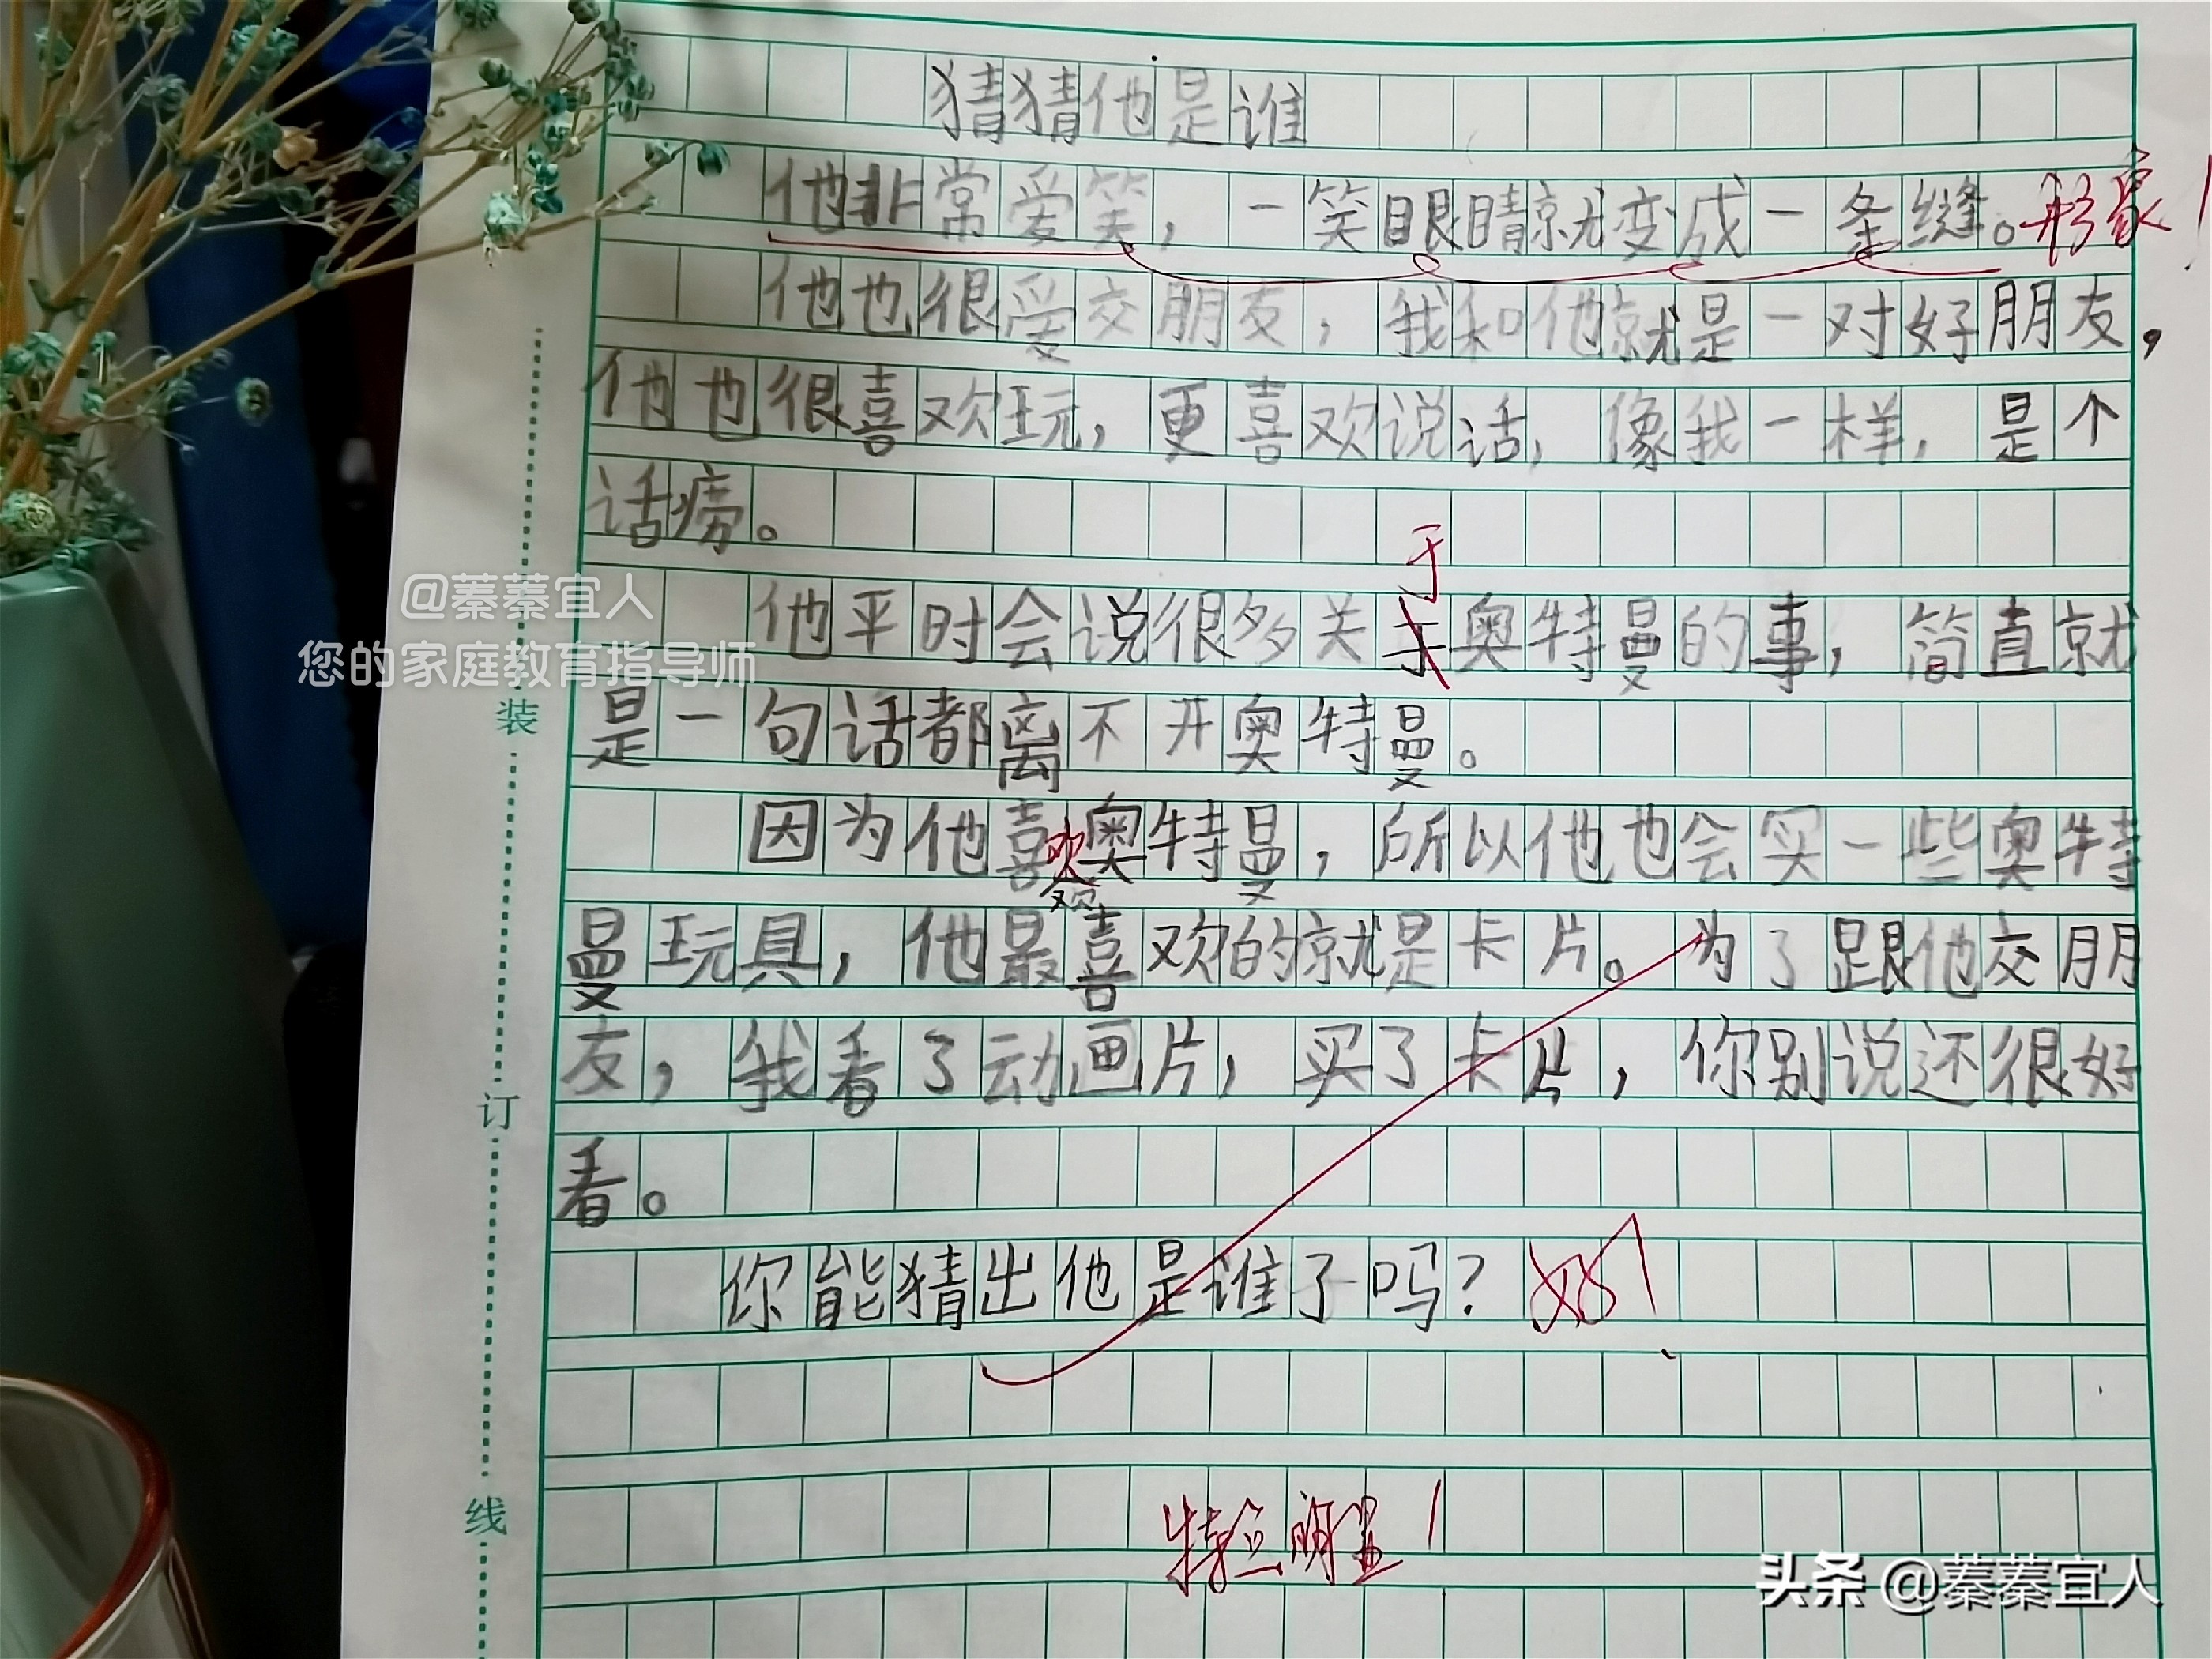 猜猜他是谁
他非常爱笑，一笑眼睛就变成一条缝。形象！
他也很爱交朋友，我和他就是一对好朋友，
他也很喜欢玩，更喜欢说话，像我一样，是个
话痨。
于
他平时会说很多关于奥特曼的事，简直就
@蓁蓁宜人
您的家庭教育指导师
是一句话都离不开奥特曼。
因为他喜欢奥特曼，所以他也会买一些奥特
曼玩具，他最喜欢的就是卡片。为了跟他交朋
友，我看了动画片，买了卡片，你别说还很好
看。
你能猜出他是谁了吗？好！
特点明显！
装
订
线
头条 @蓁蓁宜人